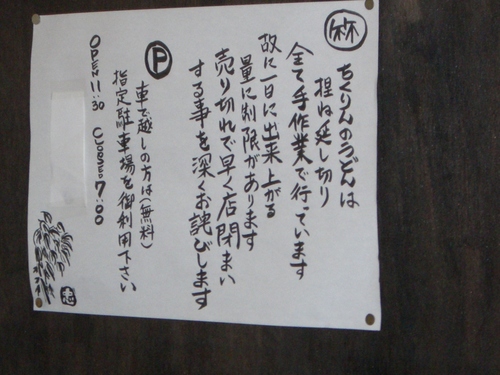 ちくりんのうどんは
捏ね延し切り
全て手作業で行っています
故に一日に出来上がる
量に制限があります
売り切れで早く店閉まい
する事を深くお詫びします
P
車で越しの方は(無料)
指定駐車場を御利用下さい
OPEN 11:30 CLOSED 7:00